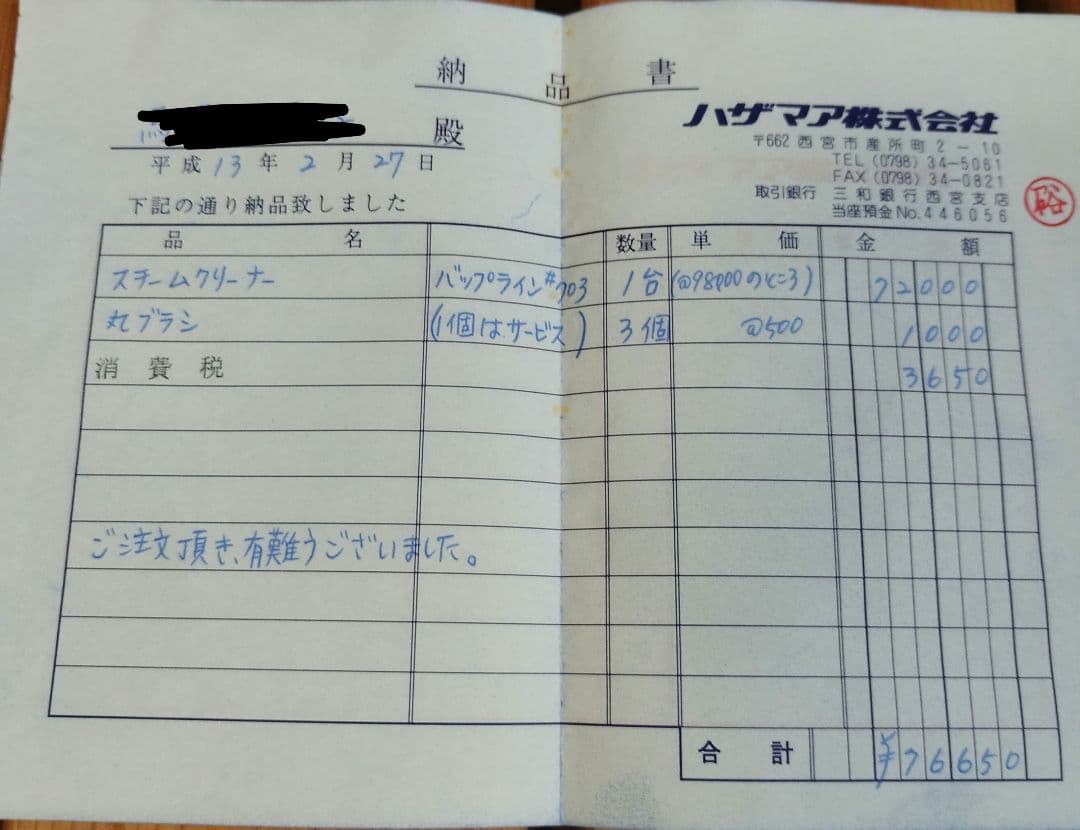 納品書
殿
平成13年2月27日
下記の通り納品致しました
ハザマア株式会社
〒662 西宮市産所町2-10
TEL (0798) 34-5061
FAX (0798) 34-0821
取引銀行 三和銀行西宮支店
当座預金No.446056
品名 数量 単価 金額
スチームクリーナー バップライン#703 1台 (@98000のところ) 72000
丸ブラシ (1個はサービス) 3個 @500 1000
消費税 3650
ご注文頂き、有難うございました。
合計 ¥76650